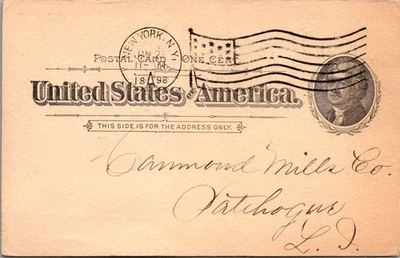 NEW YORK, N.Y.
JAN
11-
1898
POSTAL CARD ONE CENT.
United States of America.
THIS SIDE IS FOR THE ADDRESS ONLY.
Hammond Mills Co.
Patchogue
L. I.